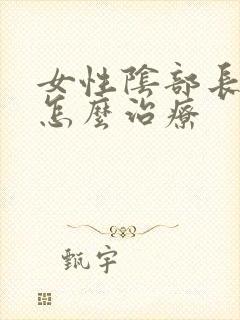 女性陰部長
怎麼治療
甄宇